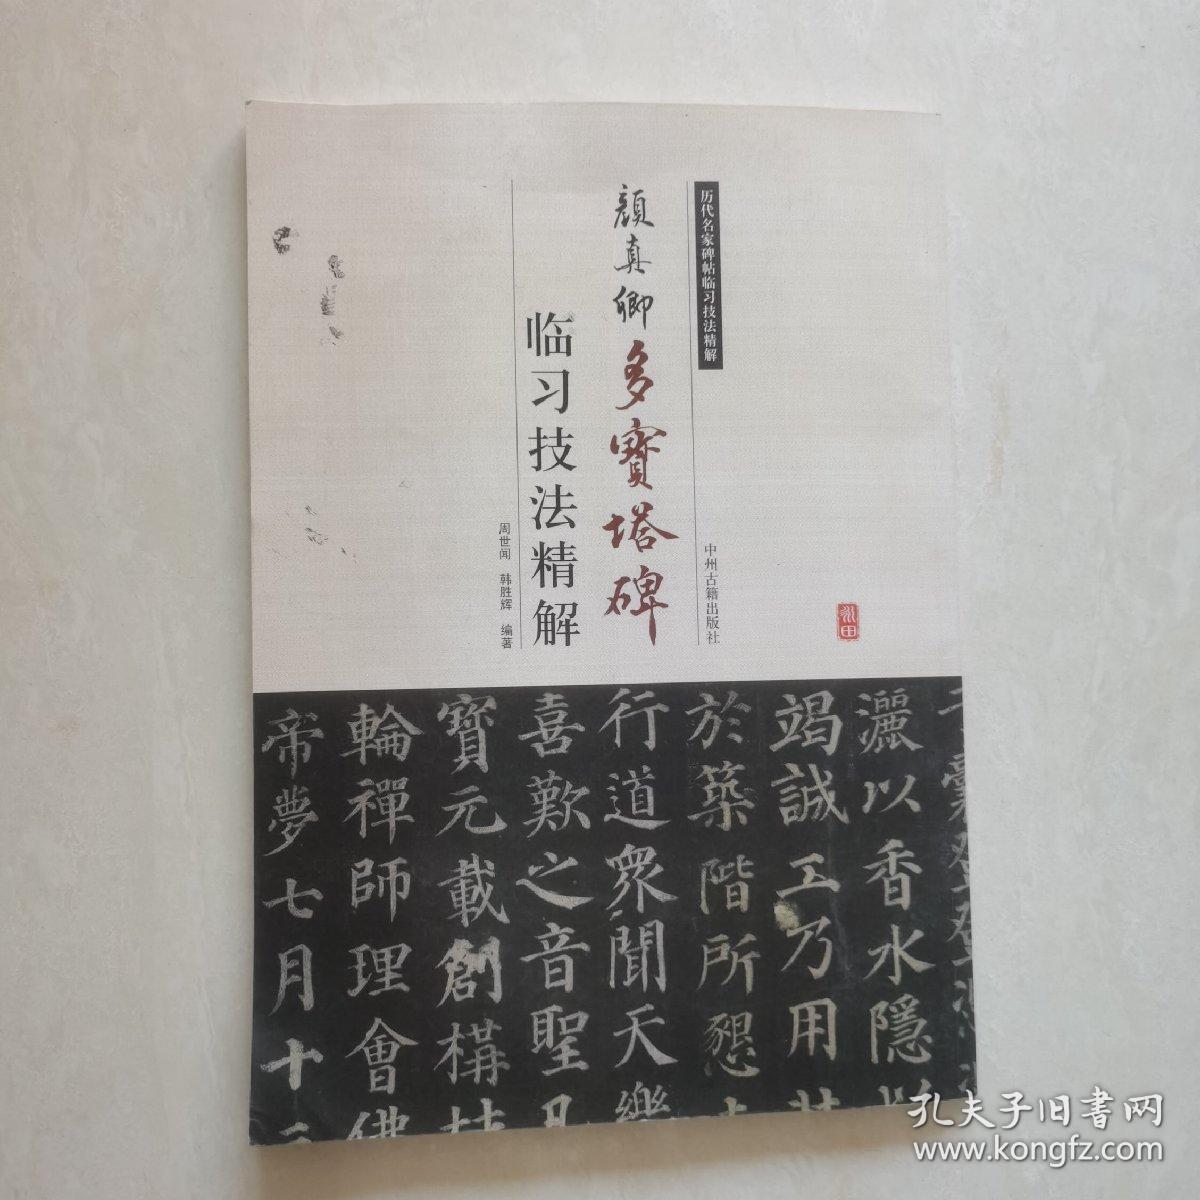 历代名家碑帖临习技法精解
中州古籍出版社
顏真卿多寶塔碑
临习技法精解
周世闻 韩胜辉 编著
灑以香水隱
竭誠工乃用其
於築階所懇
行道衆聞天樂
喜歎之音聖凡
寶元載創構材
輪禪師理會佛
帝夢七月十三
孔夫子旧书网
www.kongfz.com